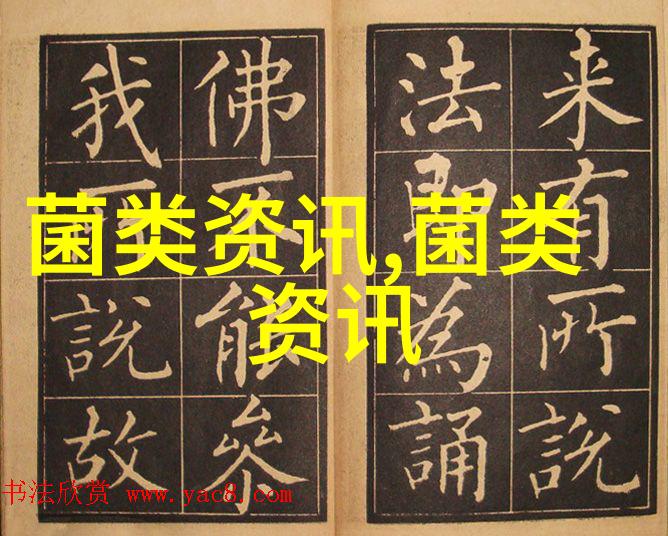 来有所說
法即為誦
佛不能參
我所說故
菌类资讯,菌类
资讯
书法欣赏 www.yac8.com